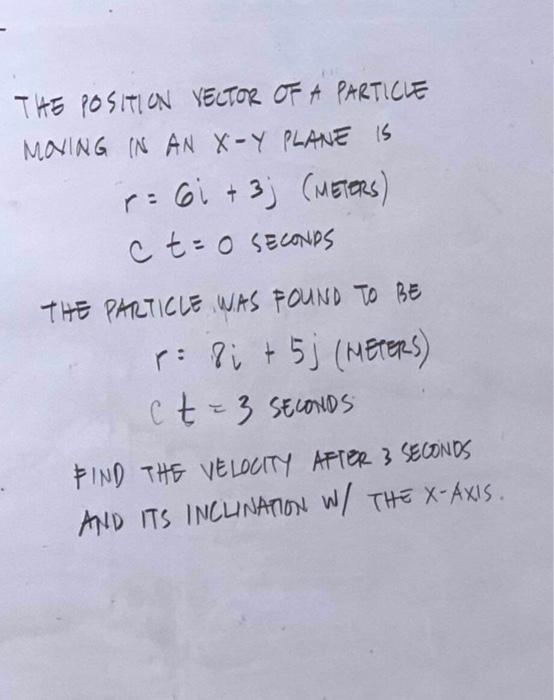 THE POSITION VECTOR OF A PARTICLE
MOVING IN AN X-Y PLANE IS
r = 6i + 3j (METERS)
C t = 0 SECONDS
THE PARTICLE WAS FOUND TO BE
r = 8i + 5j (METERS)
C t = 3 SECONDS
FIND THE VELOCITY AFTER 3 SECONDS
AND ITS INCLINATION W/ THE X-AXIS.